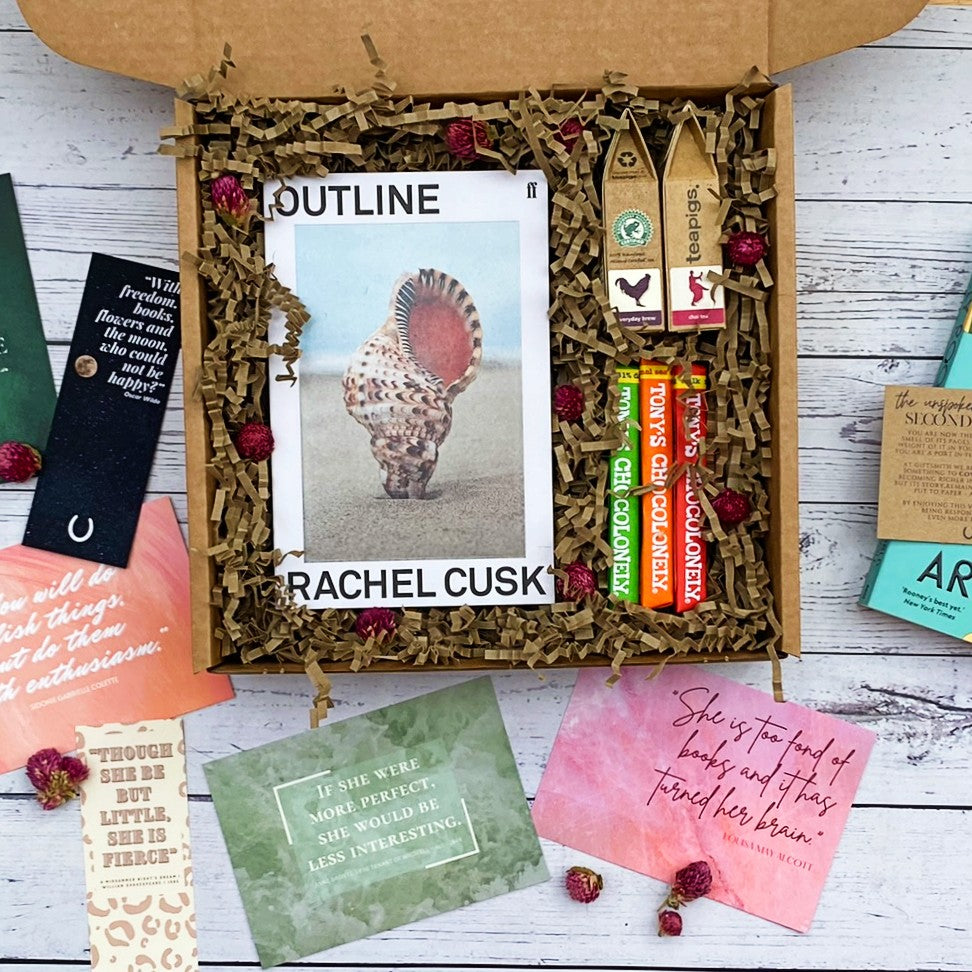 OUTLINE
ff
RACHEL CUSK
teapigs.
CERTIFIED
everyday brew
teapigs.
chai tea
TONY'S CHOCOLONELY.
TONY'S CHOCOLONELY.
TONY'S CHOCOLONELY.
"With
freedom,
books,
flowers and
the moon,
who could
not be
happy?"
Oscar Wilde
you will do
foolish things,
but do them
with enthusiasm."
SIDONIE GABRIELLE COLETTE
"THOUGH
SHE BE
BUT
LITTLE,
SHE IS
FIERCE"
A MIDSUMMER NIGHT'S DREAM
WILLIAM SHAKESPEARE
IF SHE WERE
MORE PERFECT,
SHE WOULD BE
LESS INTERESTING.
"She is too fond of
books and it has
turned her brain."
LOUISA MAY ALCOTT
the unspoke
SECOND
YOU ARE NOW TH
SMELL OF ITS PAGE
WEIGHT OF IT IN Y
YOU ARE A PORT IN T
AT GIFTSMITH WE
SOMETHING TO CO
BECOMING RICHER
BUT ITS STORY REMA
PUT TO PAPER
BY ENJOYING THIS
BEING RESPON
EVEN MORE
AR
'Rooney's best yet.'
New York Times